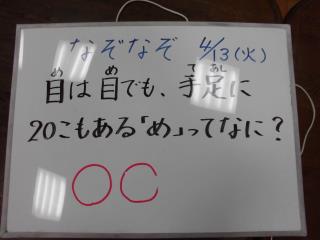 なぞなぞ 4/13(火)
目は目でも、手足に
20こもある「め」ってなに?
○○